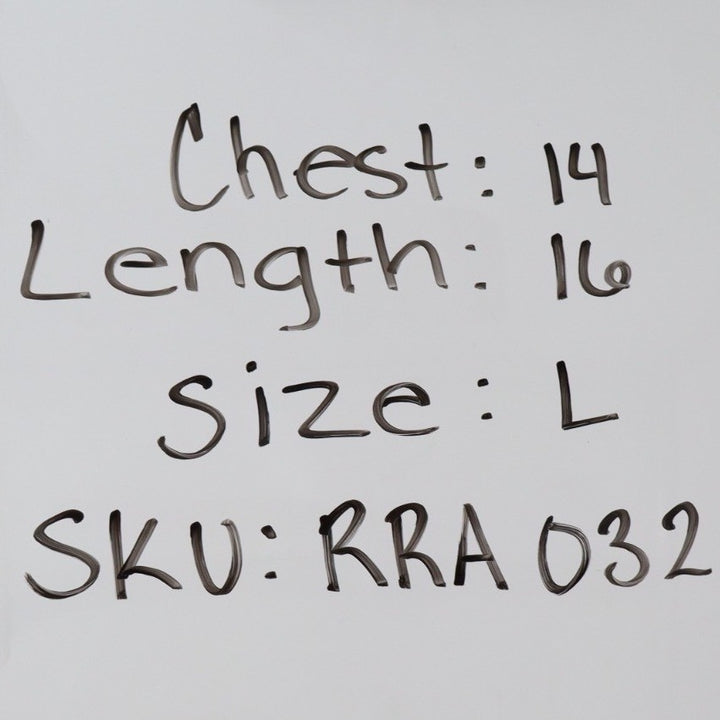 Chest: 14
Length: 16
Size: L
SKU: RRA 032